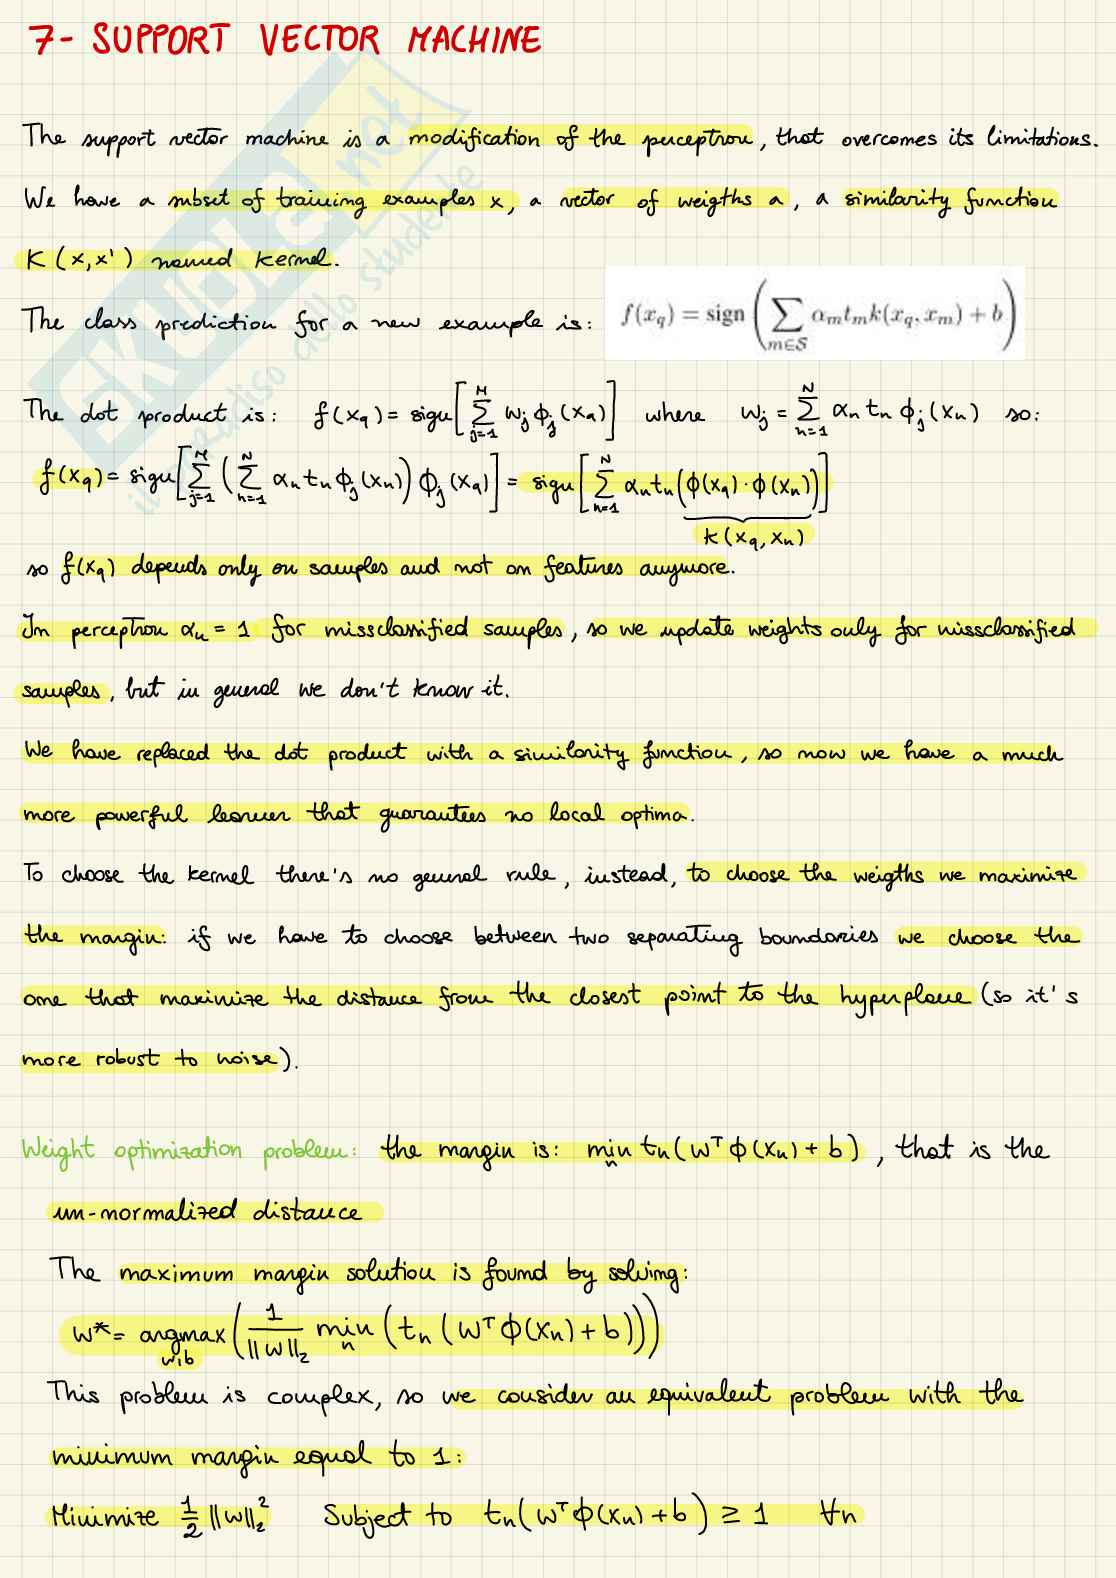 7- SUPPORT VECTOR MACHINE
The support vector machine is a modification of the perceptron, that overcomes its limitations.
We have a subset of training examples x, a vector of weigths a, a similarity function
K (x,x') named kernel.
The class prediction for a new example is: f(x_q) = sign(∑_{m∈S} α_m t_m k(x_q, x_m) + b)
The dot product is: f(x_q) = sign[∑_{j=1}^{M} w_j ϕ_j(x_q)] where w_j = ∑_{n=1}^{N} α_n t_n ϕ_j(x_n) so:
f(x_q) = sign[∑_{j=1}^{M} (∑_{n=1}^{N} α_n t_n ϕ_j(x_n)) ϕ_j(x_q)] = sign[∑_{n=1}^{N} α_n t_n (ϕ(x_q)·ϕ(x_n))]
k(x_q, x_n)
so f(x_q) depends only on samples and not on features anymore.
In perceptron α_n = 1 for missclassified samples, so we update weights only for missclassified
samples, but in general we don't know it.
We have replaced the dot product with a similarity function, so now we have a much
more powerful learner that guarantees no local optima.
To choose the kernel there's no general rule, instead, to choose the weigths we maximize
the margin: if we have to choose between two separating boundaries we choose the
one that maximize the distance from the closest point to the hyperplane (so it's
more robust to noise).
Weight optimization problem: the margin is: min_n t_n(w^T ϕ(x_n) + b), that is the
un-normalized distance
The maximum margin solution is found by solving:
w* = argmax_{w,b} (1/||w||_2 min_n (t_n (w^T ϕ(x_n) + b)))
This problem is complex, so we consider an equivalent problem with the
minimum margin equal to 1:
Minimize 1/2 ||w||_2^2 Subject to t_n(w^T ϕ(x_n) + b) ≥ 1 ∀n
SKUOLA.net